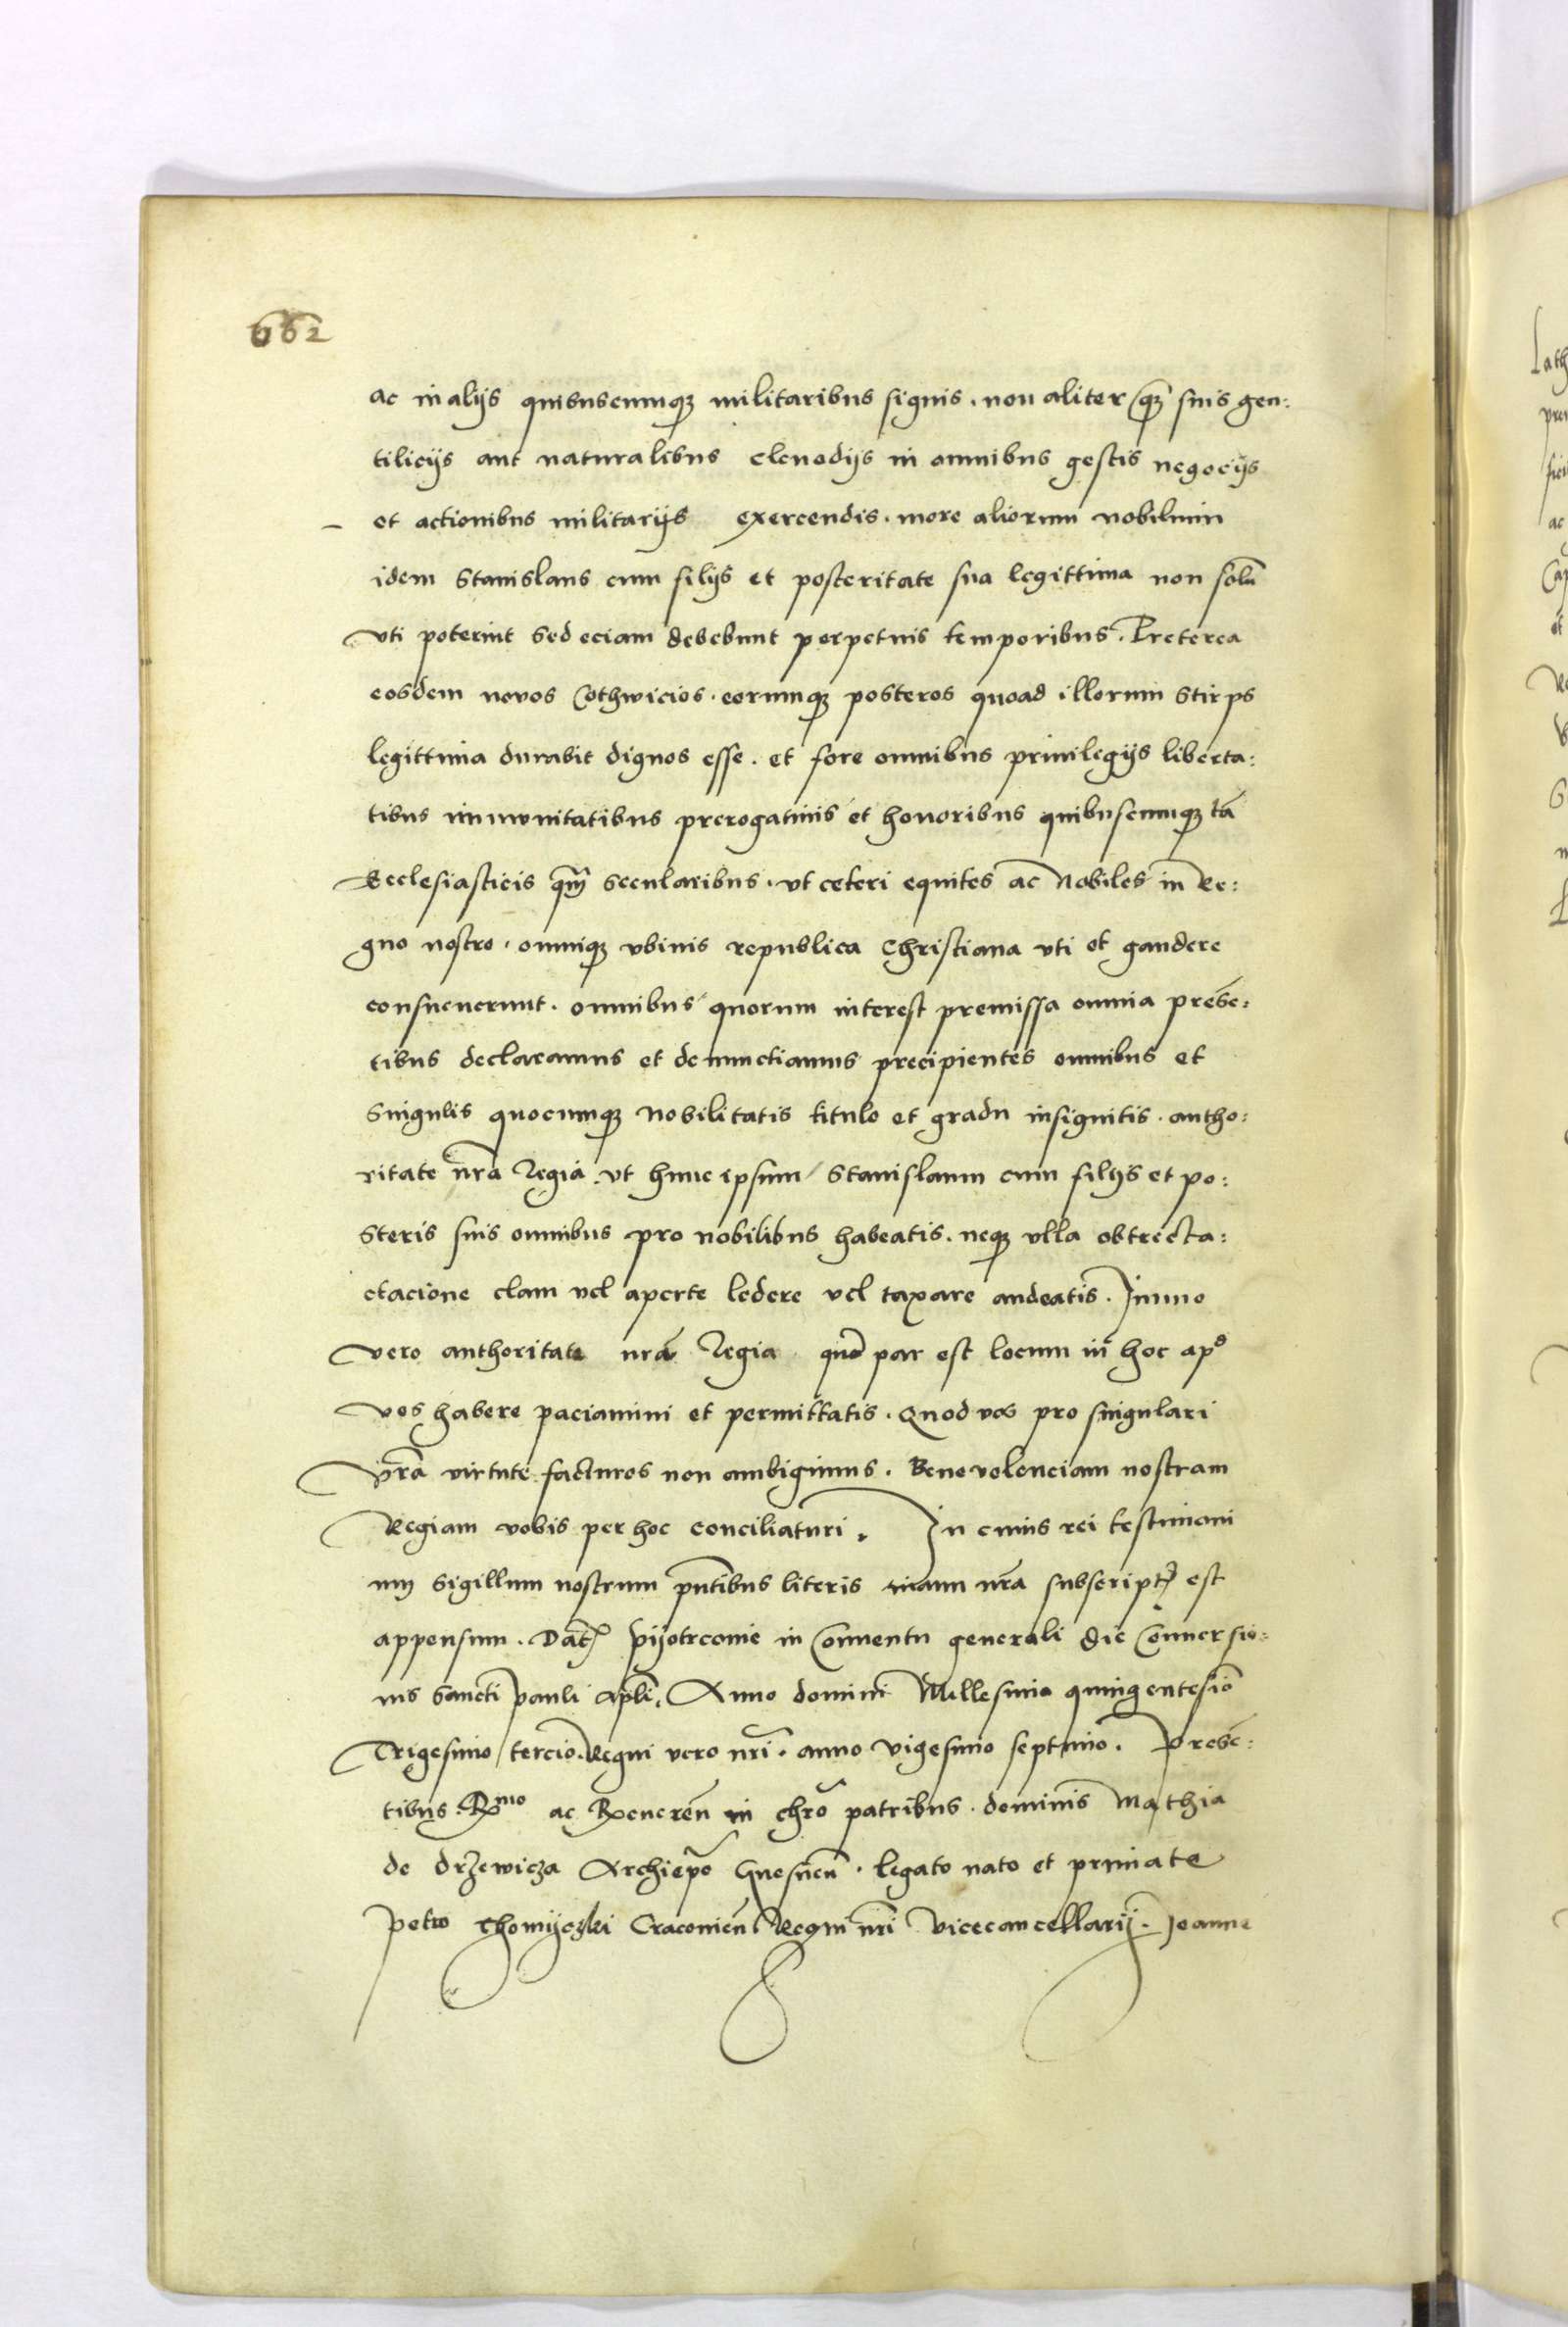 662
ac in alijs quibuscumqꝫ militaribus signis. non aliter qꝫ suis gen:
tilicijs aut naturalibus clenodijs in omnibus gestis negocijs
et actionibus militarijs exercendis. more aliorum nobilium
idem Stanislaus cum filijs et posteritate sua legittima non solũ
vti poterint sed eciam debebunt perpetuis temporibus. Preterea
eosdem novos Cothwicios. eorumqꝫ posteros quoad illorum stirps
legittima durabit dignos esse. et fore omnibus priuilegijs liberta:
tibus immunitatibus prerogatiuis et honoribus quibuscumqꝫ tã
Ecclesiasticis qm̃ secularibus. vt ceteri equites ac Nobiles in Re:
gno nostro. omniqꝫ vbiuis republica Christiana vti et gaudere
consueuerunt. omnibus quorum interest premissa omnia presẽ:
tibus declaramus et denunctiamus precipientes omnibus et
singulis quocumqꝫ nobilitatis titulo et gradu insignitis. autho:
ritate nrã Regia. vt hunc ipsum Stanislaum cum filijs et po:
steris suis omnibus pro nobilibus habeatis. neqꝫ vlla obtrecta:
ctacione clam vel aperte ledere vel taxare audeatis. Immo
vero authoritate nrã Regia quẽ par est locum in hoc apd
vos habere paciamini et permittatis. Quod vos pro singulari
vrã virtute facturos non ambigimus. Beneuolenciam nostram
Regiam vobis per hoc conciliaturi. In cuius rei testimoni
um Sigillum nostrum pñtibus literis manu nrã subscript est
appensum. Dat Pijotrcouie in Conuentu generali die Conuersio:
nis Sancti Pauli apli. Anno domini Millesimo quingentesiō
Trigesimo tercio. Regni vero nrĩ. anno vigesimo septimo. Presẽ:
tibus. Rmo ac Reuereñ in chrõ patribus. dominis Mathia
de drzewicza Archiepõ Gnesneñ. legato nato et primate
Petro Thomijczki Cracouieñ Regni nrĩ Vicecancellarij. Joanne